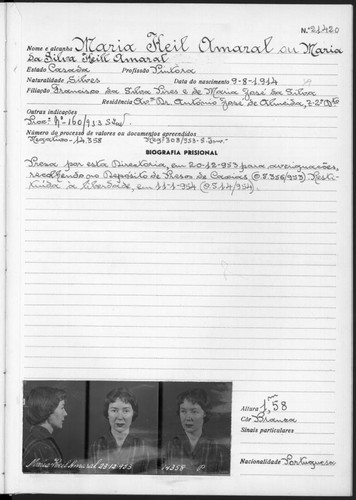 N.º 21420
Nome e alcunha Maria Keil Amaral ou Maria
da Silva Keil Amaral
Estado Casada Profissão Pintora
Naturalidade Silves Data do nascimento 9-8-1914
Filiação Francisco da Silva Pires e de Maria José da Silva
Residência Avª. Dr. António José de Almeida, 7-2º Dtº
Outras indicações
Procº Nº 160/953 S Inv.
Número do processo de valores ou documentos apreendidos
Negativo - 14.358 Regº 308/953-S. Inv.
BIOGRAFIA PRISIONAL
Presa por esta Directoria, em 20-12-953 para averiguações,
recolhendo ao Depósito de Presos de Caxias (O.S. 356/953) Resti-
tuída à liberdade, em 11-1-954 (O.S. 14/954).
Altura 1,m58
Côr Branca
Sinais particulares
Nacionalidade Portuguesa
Maria Keil Amaral 29 12 953 14358 P